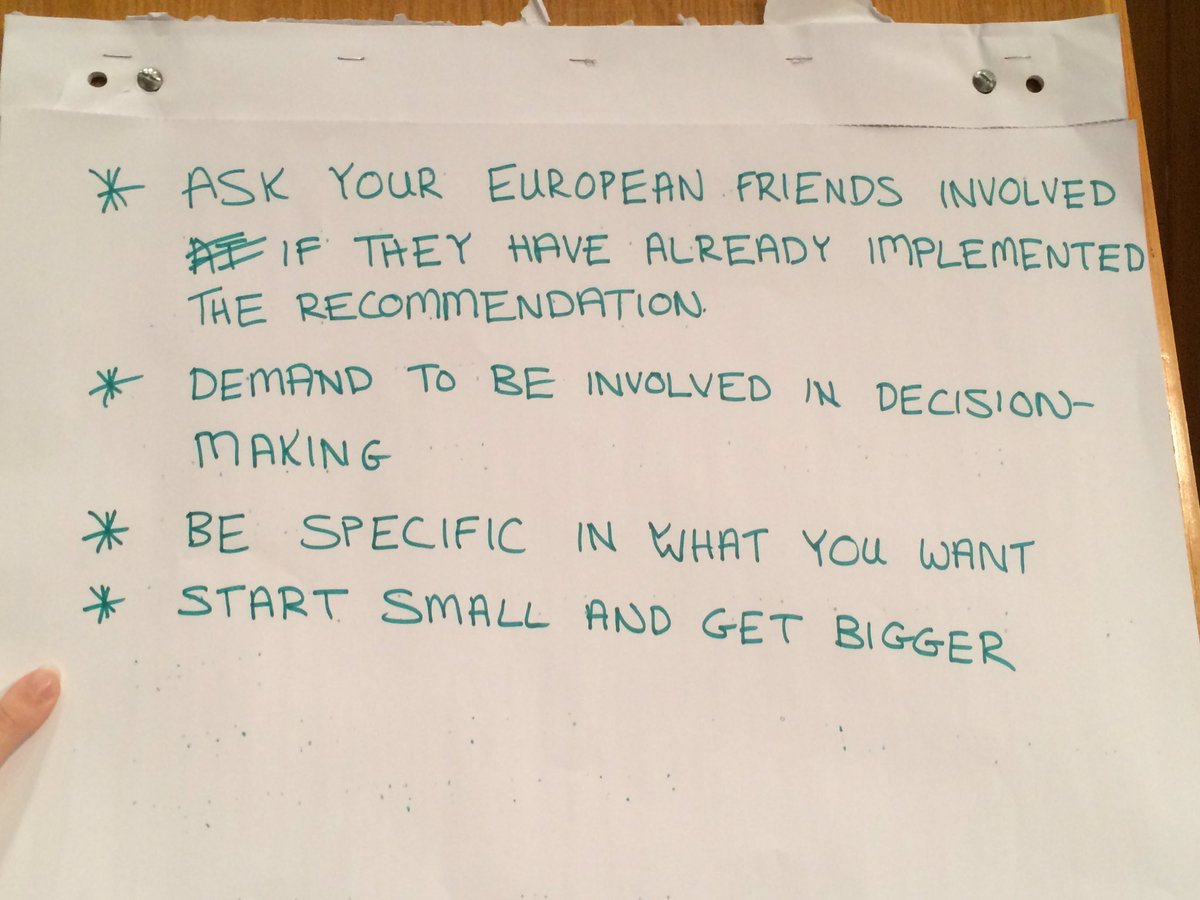 * ASK YOUR EUROPEAN FRIENDS INVOLVED
IF THEY HAVE ALREADY IMPLEMENTED
THE RECOMMENDATION.
* DEMAND TO BE INVOLVED IN DECISION-
MAKING
* BE SPECIFIC IN WHAT YOU WANT
* START SMALL AND GET BIGGER